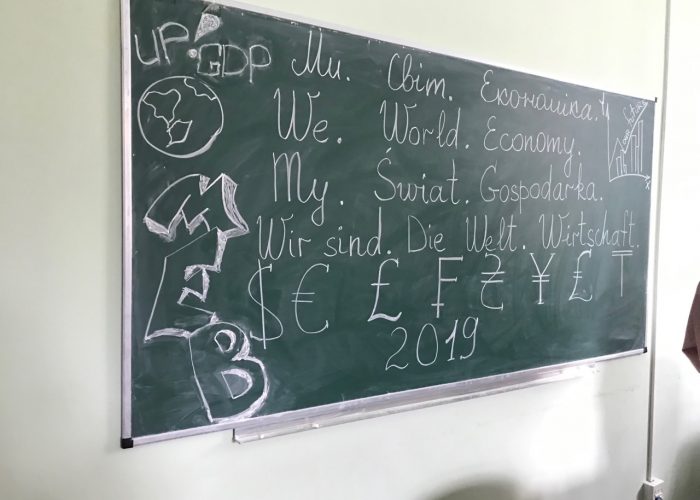 UP GDP
Ми. Світ. Економіка.
We. World. Economy.
My. Świat. Gospodarka.
Wir sind. Die Welt. Wirtschaft.
$ € £ ₣ ₴ ¥ £ ₸
2019
МЕВ